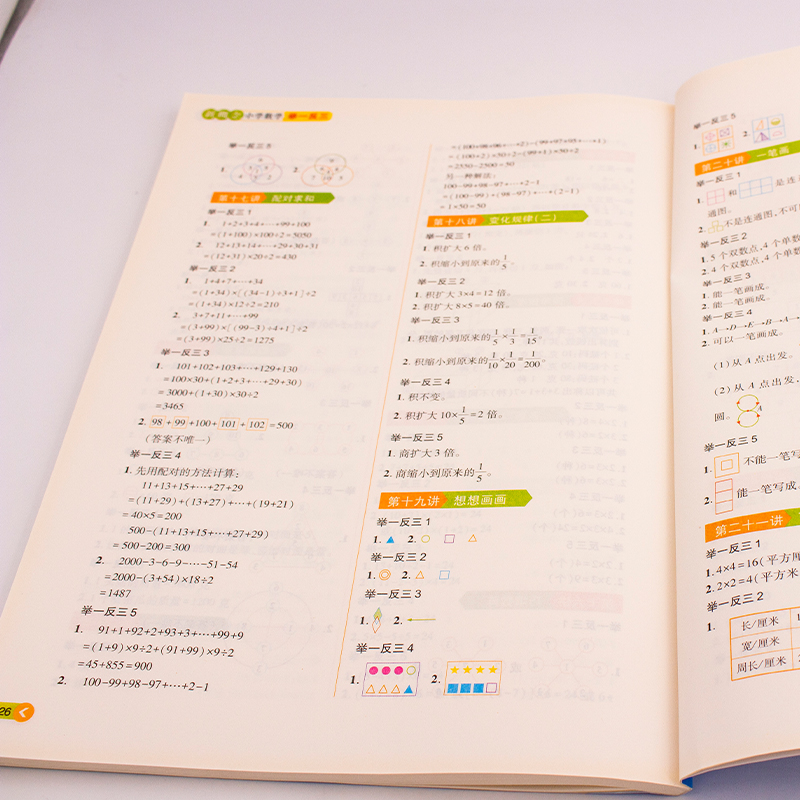 小学数学 举一反三
举一反三5
1. 2.
第十七讲 配对求和
举一反三1
1. 1+2+3+4+…+99+100
=(1+100)×100÷2=5050
2. 12+13+14+…+29+30+31
=(12+31)×20÷2=430
举一反三2
1. 1+4+7+…+34
=(1+34)×[(34-1)÷3+1]÷2
=(1+34)×12÷2=210
2. 3+7+11+…+99
=(3+99)×[(99-3)÷4+1]÷2
=(3+99)×25÷2=1275
举一反三3
1. 101+102+103+…+129+130
=100×30+(1+2+3+…+29+30)
=3000+(1+30)×30÷2
=3465
2. 98+99+100+101+102=500
(答案不唯一)
举一反三4
1. 先用配对的方法计算:
11+13+15+…+27+29
=(11+29)+(13+27)+…+(19+21)
=40×5=200
500-(11+13+15+…+27+29)
=500-200=300
2. 2000-3-6-9-…-51-54
=2000-(3+54)×18÷2
=1487
举一反三5
1. 91+1+92+2+93+3+…+99+9
=(1+9)×9÷2+(91+99)×9÷2
=45+855=900
2. 100-99+98-97+…+2-1
26
=(100+98+96+…+2)-(99+97+95+…+1)
=(100+2)×50÷2-(99+1)×50÷2
=2550-2500=50
另一种解法:
100-99+98-97+…+2-1
=(100-99)+(98-97)+…+(2-1)
=1×50=50
第十八讲 变化规律(二)
举一反三1
1. 积扩大6倍。
2. 积缩小到原来的1/5。
举一反三2
1. 积扩大3×4=12倍。
2. 积扩大8×5=40倍。
举一反三3
1. 积缩小到原来的1/5×1/3=1/15。
2. 积缩小到原来的1/10×1/20=1/200。
举一反三4
1. 积不变。
2. 积扩大10×1/5=2倍。
举一反三5
1. 商扩大3倍。
2. 商缩小到原来的1/5。
第十九讲 想想画画
举一反三1
1. 2.
举一反三2
1. 2.
举一反三3
1. 2.
举一反三4
1. 2.
举一反三5
1. 2.
第二十讲 一笔画
举一反三1
1. 和 是连
通图。
2. 不是连通图,不可
举一反三2
1. 5个双数点,4个单数
2. 4个双数点,4个单
举一反三3
1. 能一笔画成。
2. 能一笔画成。
举一反三4
1. A→D→E→B→A→
2. 可以一笔画成。
(1)从A点出发。
(2)从A点出发,
圆。 A
举一反三5
1. 不能一笔写
2. 能一笔写成。
第二十一讲
举一反三1
1. 4×4=16(平方厘
2. 2×2=4(平方米
举一反三2
1. 长/厘米
宽/厘米
周长/厘米